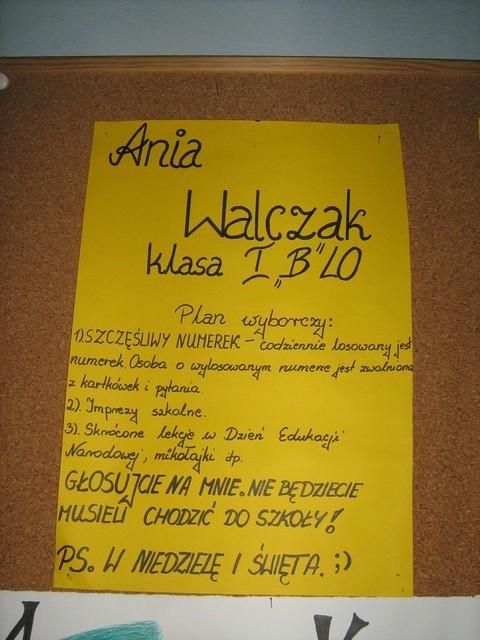 Ania
Walczak
klasa I „B" LO
Plan wyborczy:
1). SZCZĘŚLIWY NUMEREK - codziennie losowany jest
numerek. Osoba o wylosowanym numerze jest zwolniona
z kartkówek i pytania.
2). Imprezy szkolne.
3). Skrócone lekcje w Dzień Edukacji
Narodowej, mikołajki itp.
GŁOSUJCIE NA MNIE. NIE BĘDZIECIE
MUSIELI CHODZIĆ DO SZKOŁY!
PS. W NIEDZIELĘ I ŚWIĘTA. ;)